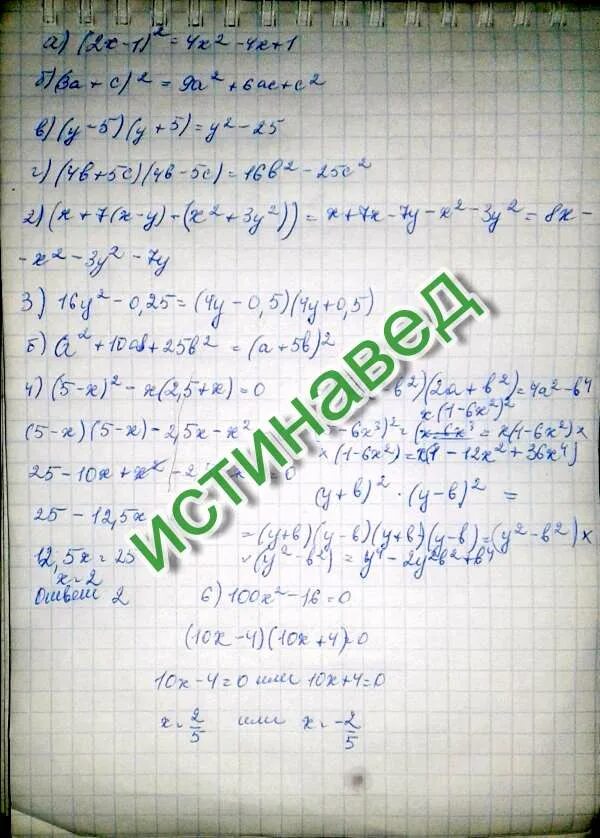 а) (2x-1)² = 4x² - 4x+1
б) (3a + c)² = 9a² + 6ac + c²
в) (y-5)(y+5) = y² - 25
г) (4b+5c)(4b-5c) = 16b² - 25c²
2) (x + 7(x-y) - (x² + 3y²)) = x + 7x - 7y - x² - 3y² = 8x -
- x² - 3y² - 7y
3) 16y² - 0,25 = (4y - 0,5)(4y + 0,5)
б) a² + 10ab + 25b² = (a + 5b)²
4) (5-x)² - x(2,5+x) = 0
(5-x)(5-x) - 2,5x - x²
25 - 10x + x² - 2 = 0
25 - 12,5x
12,5x = 25
x = 2
Ответ 2
b²)(2a + b²) = 4a² - b⁴
x(1-6x²)²
- 6x³)² = (x-6x³ = x(1-6x²) x
x (1-6x²) = x(1 - 12x² + 36x⁴)
(y+b)² · (y-b)² =
= (y+b)(y-b)(y+b)(y-b) = (y² - b²) x
x (y² - b²) = y⁴ - 2y²b² + b⁴
6) 100x² - 16 = 0
(10x-4)(10x+4) = 0
10x-4=0 или 10x+4=0
x = 2/5 или x = -2/5
ИСТИНАВЕД